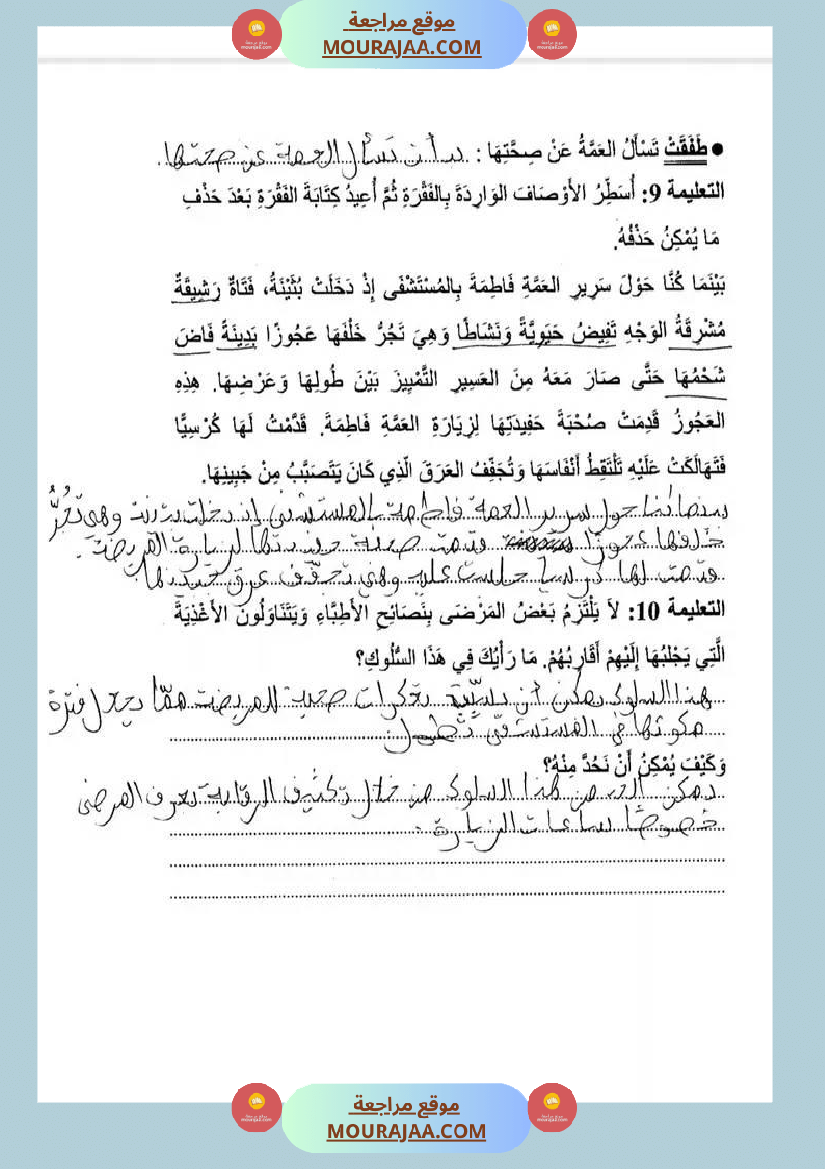 موقع مراجعة
MOURAJAA.COM
● طَفَقَتْ تَسْأَلُ العَمَّةُ عَنْ صِحَّتِهَا : بدأت تسأل العمة عن صحتها.
التعليمة 9: أُسَطِّرُ الأَوْصَافَ الوَارِدَةَ بِالفَقْرَةِ ثُمَّ أُعِيدُ كِتَابَةَ الفَقْرَةِ بَعْدَ حَذْفِ
مَا يُمْكِنُ حَذْفُهُ.
بَيْنَمَا كُنَّا حَوْلَ سَرِيرِ العَمَّةِ فَاطِمَةَ بِالمُسْتَشْفَى إِذْ دَخَلَتْ بُثَيْنَةُ، فَتَاةٌ رَشِيقَةٌ
مُشْرِقَةُ الوَجْهِ تَفِيضُ حَيَوِيَّةً وَنَشَاطًا وَهِيَ تَجُرُّ خَلْفَهَا عَجُوزًا بَدِينَةً فَاضَ
شَحْمُهَا حَتَّى صَارَ مَعَهُ مِنَ العَسِيرِ التَّمْيِيزَ بَيْنَ طُولِهَا وَعَرْضِهَا. هَذِهِ
العَجُوزُ قَدِمَتْ صُحْبَةَ حَفِيدَتِهَا لِزِيَارَةِ العَمَّةِ فَاطِمَةَ. قَدَّمْتُ لَهَا كُرْسِيًّا
فَتَهَالَكَتْ عَلَيْهِ تَلْتَقِطُ أَنْفَاسَهَا وَتُجَفِّفُ العَرَقَ الَّذِي كَانَ يَتَصَبَّبُ مِنْ جَبِينِهَا.
بينما كنا حول سرير العمة فاطمة بالمستشفى إذ دخلت بثينة وهي تجُرُّ
خلفها عجوزا قدمت صحبة حفيدتها لزيارة المريضة.
قدمت لها كرسيا جلست عليه وهي تجفّف عرق جبينها.
التعليمة 10: لاَ يَلْتَزِمُ بَعْضُ المَرْضَى بِنَصَائِحِ الأَطِبَّاءِ وَيَتَنَاوَلُونَ الأَغْذِيَةَ
الَّتِي يَجْلِبُهَا إِلَيْهِمْ أَقَارِبُهُمْ. مَا رَأْيُكَ فِي هَذَا السُّلُوكِ؟
هذا السلوك يمكن أن صحية للمريض ممّا يجعل فترة
مكوثها في المستشفى تطول.
وَكَيْفَ يُمْكِنُ أَنْ نَحُدَّ مِنْهُ؟
يمكن الحد من هذا السلوك من خلال تكثيف الرقابة بغرف المرضى
خصوصًا ساعات الزيارة.
موقع مراجعة
MOURAJAA.COM